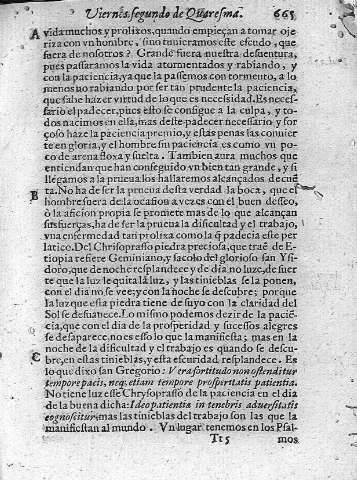 Viernes segundo de Quaresma. 665
A vida muchos y prolixos, quando empieçan a tomar oje
riza con vn hombre, sino tuuieramos este escudo, que
fuera de nosotros? Grande fuera nuestra desuentura,
pues passaramos la vida atormentados y rabiando, y
con la paciencia, ya que la passemos con tormento, a lo
menos no rabiando por ser tan prudente la paciencia,
que sabe hazer virtud de lo que es necessidad. Es neces-
sario el padecer, pues esto se consigue a la culpa, y to
dos nacimos en ella, mas deste padecer necessario y for
çoso haze la paciencia premio, y estas penas las conuier
te en gloria, y el hombre sin paciencia es como vn po-
co de arena floxa y suelta. Tambien aura muchos que
entiendan que han conseguido vn bien tan grande, y si
llegamos a la prueua los hallaremos alcançados de cuẽ
B ta. No ha de ser la prueua desta verdad la boca, que el
hombre fuera de la ocasion a vezes con el buen desseo,
ò la aficion propia se promete mas de lo que alcançan
sus fuerças, ha de ser la prueua la dificultad y el trabajo,
vna enfermedad tan prolixa como la q̃ padecia este per
latico. Del Chrisoprasso piedra preciosa, que trae de E-
tiopia refiere Geminiano, y sacolo del glorioso san Ysi-
doro, que de noche resplandece y de dia no luze, de suer
te que la luz le quita la luz, y las tinieblas se la ponen,
con el dia no se vee, y con la noche se descubre; porque
la luz que essa piedra tiene de suyo con la claridad del
Sol se desuanece. Lo mismo podemos dezir de la paciẽ-
cia, que con el dia de la prosperidad y sucessos alegres
se desaparece, no es esso lo que la manifiesta; mas en la
noche de la dificultad y el trabajo es quando se descu-
C bre, en estas tinieblas, y esta escuridad resplandece. Es
lo que dixo san Gregorio: Vera fortitudo non ostenditur
tempore pacis, neq; etiam tempore prosperitatis patientia.
No tiene luz esse Chrysoprasso de la paciencia en el dia
de la buena dicha: Ideo patientia in tenebris aduersitatis
cognoscitur, mas las tinieblas del trabajo son las que la
manifiestan al mundo. Vn lugar tenemos en los Psal-
Tt 5 mos